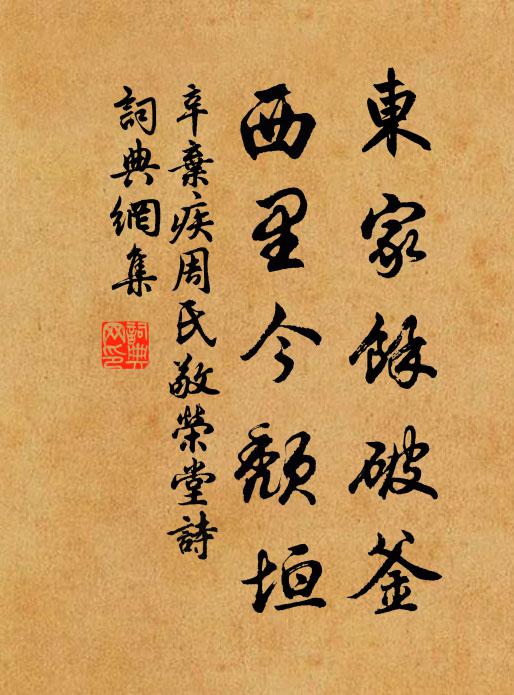 東家餘破釜
西里今頹垣
辛棄疾周氏敬榮堂詩
詞典網集
詞典
网印